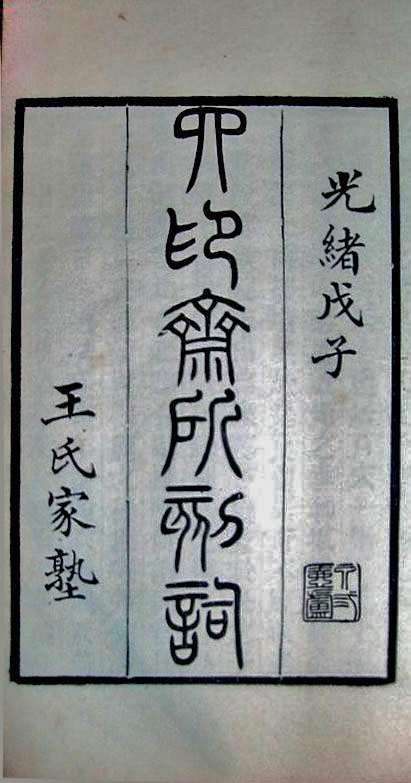 光緒戊子
四印齋所刻詞
王氏家塾